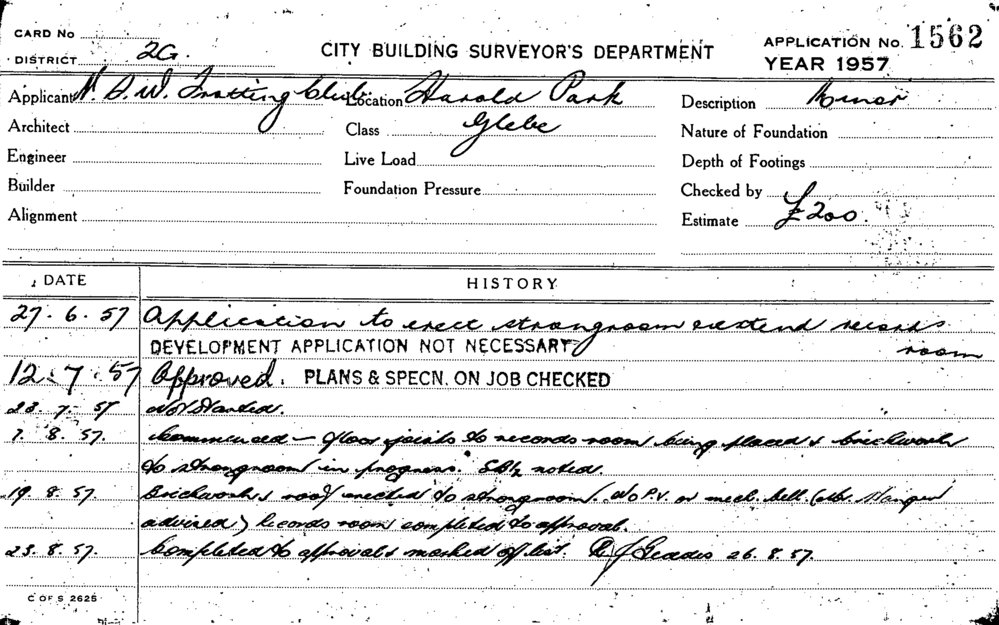 CARD No
CITY BUILDING SURVEYOR'S DEPARTMENT
APPLICATION No. 1562
DISTRICT 2G.
YEAR 1957
Applicant N.S.W. Trotting Club Location Harold Park Description Minor
Architect Class Glebe Nature of Foundation
Engineer Live Load Depth of Footings
Builder Foundation Pressure Checked by
Alignment Estimate £200.
DATE HISTORY
27.6.57 Application to erect strongroom & extend records
room
DEVELOPMENT APPLICATION NOT NECESSARY
12.7.57 Approved. PLANS & SPECN. ON JOB CHECKED
23.7.57 Not Started.
7.8.57. Commenced - floor joists to records room being placed & brickwork
to strongroom in progress. noted.
19.8.57 Brickwork & roof erected to strongroom (No P.V. or mech.
advised) Records room completed to approval.
23.8.57. Completed to approval & marked off list. R J Geddes 26.8.57.
C OF S 2625